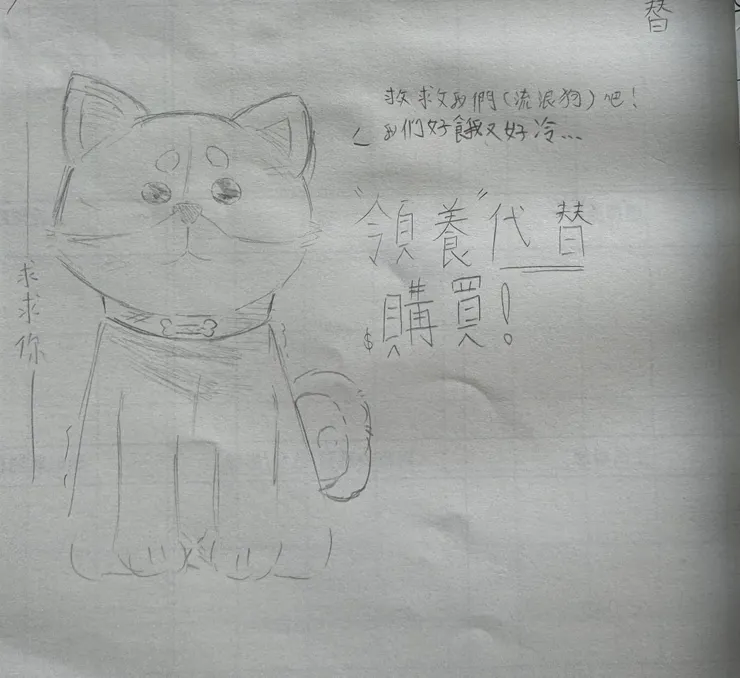 替
救救我們(流浪狗)吧!
我们好餓又好冷...
"領養"代替
$購買!
求求你